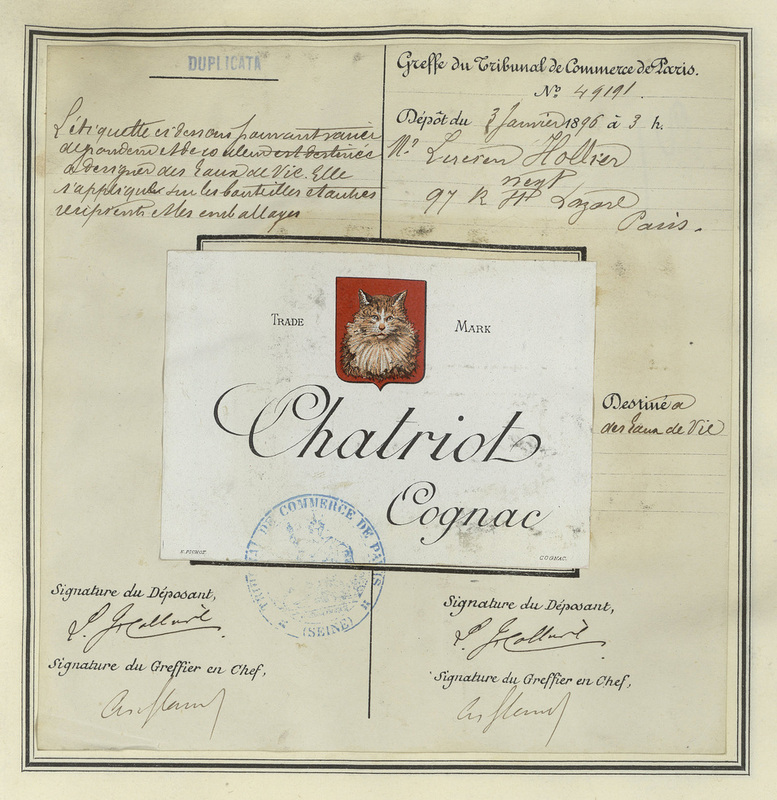 DUPLICATA
L'étiquette ci dessous pouvant varier
de grandeur et de couleur est destinée
a désigner des Eaux de Vie. Elle
s'applique sur les bouteilles et autres
récipients et les emballages
Greffe du Tribunal de Commerce de Paris.
No. 49191.
Dépôt du 3 Janvier 1896 à 3 h.
Mr. Lucien Hollier
negt
97 R St Lazare
Paris.
TRADE MARK
Chatriot
Cognac
COGNAC.
Destiné a
des Eaux de Vie
TRIBUNAL DE COMMERCE DE PARIS
(SEINE)
Signature du Déposant,
Signature du Greffier en Chef,
Signature du Déposant,
Signature du Greffier en Chef,